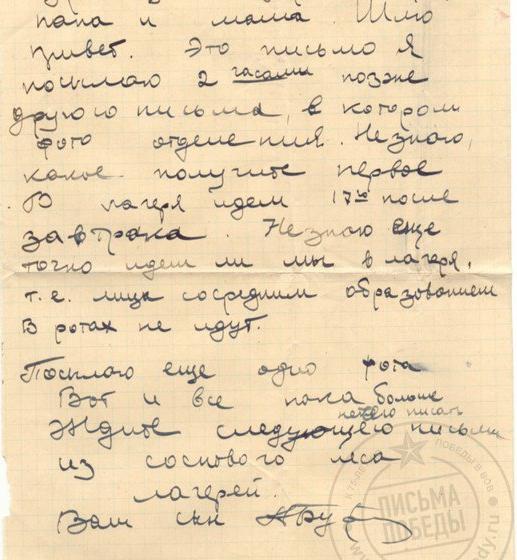 папа и мама. Шлю
привет. Это письмо я
посылаю 2 часами позже
другого письма, в котором
фото отделения. Не знаю,
какое получите первое
В лагеря идем 17го после
завтрака. Не знаю еще
точно идем ли мы в лагеря,
т.е. лица со средним образованием
в ротах не идут.
Посылаю еще одно фото
Вот и все пока больше
нечего писать
Ждите следующего письма
из соснового леса
лагерей.
Ваш сын
ПИСЬМА
ПОБЕДЫ